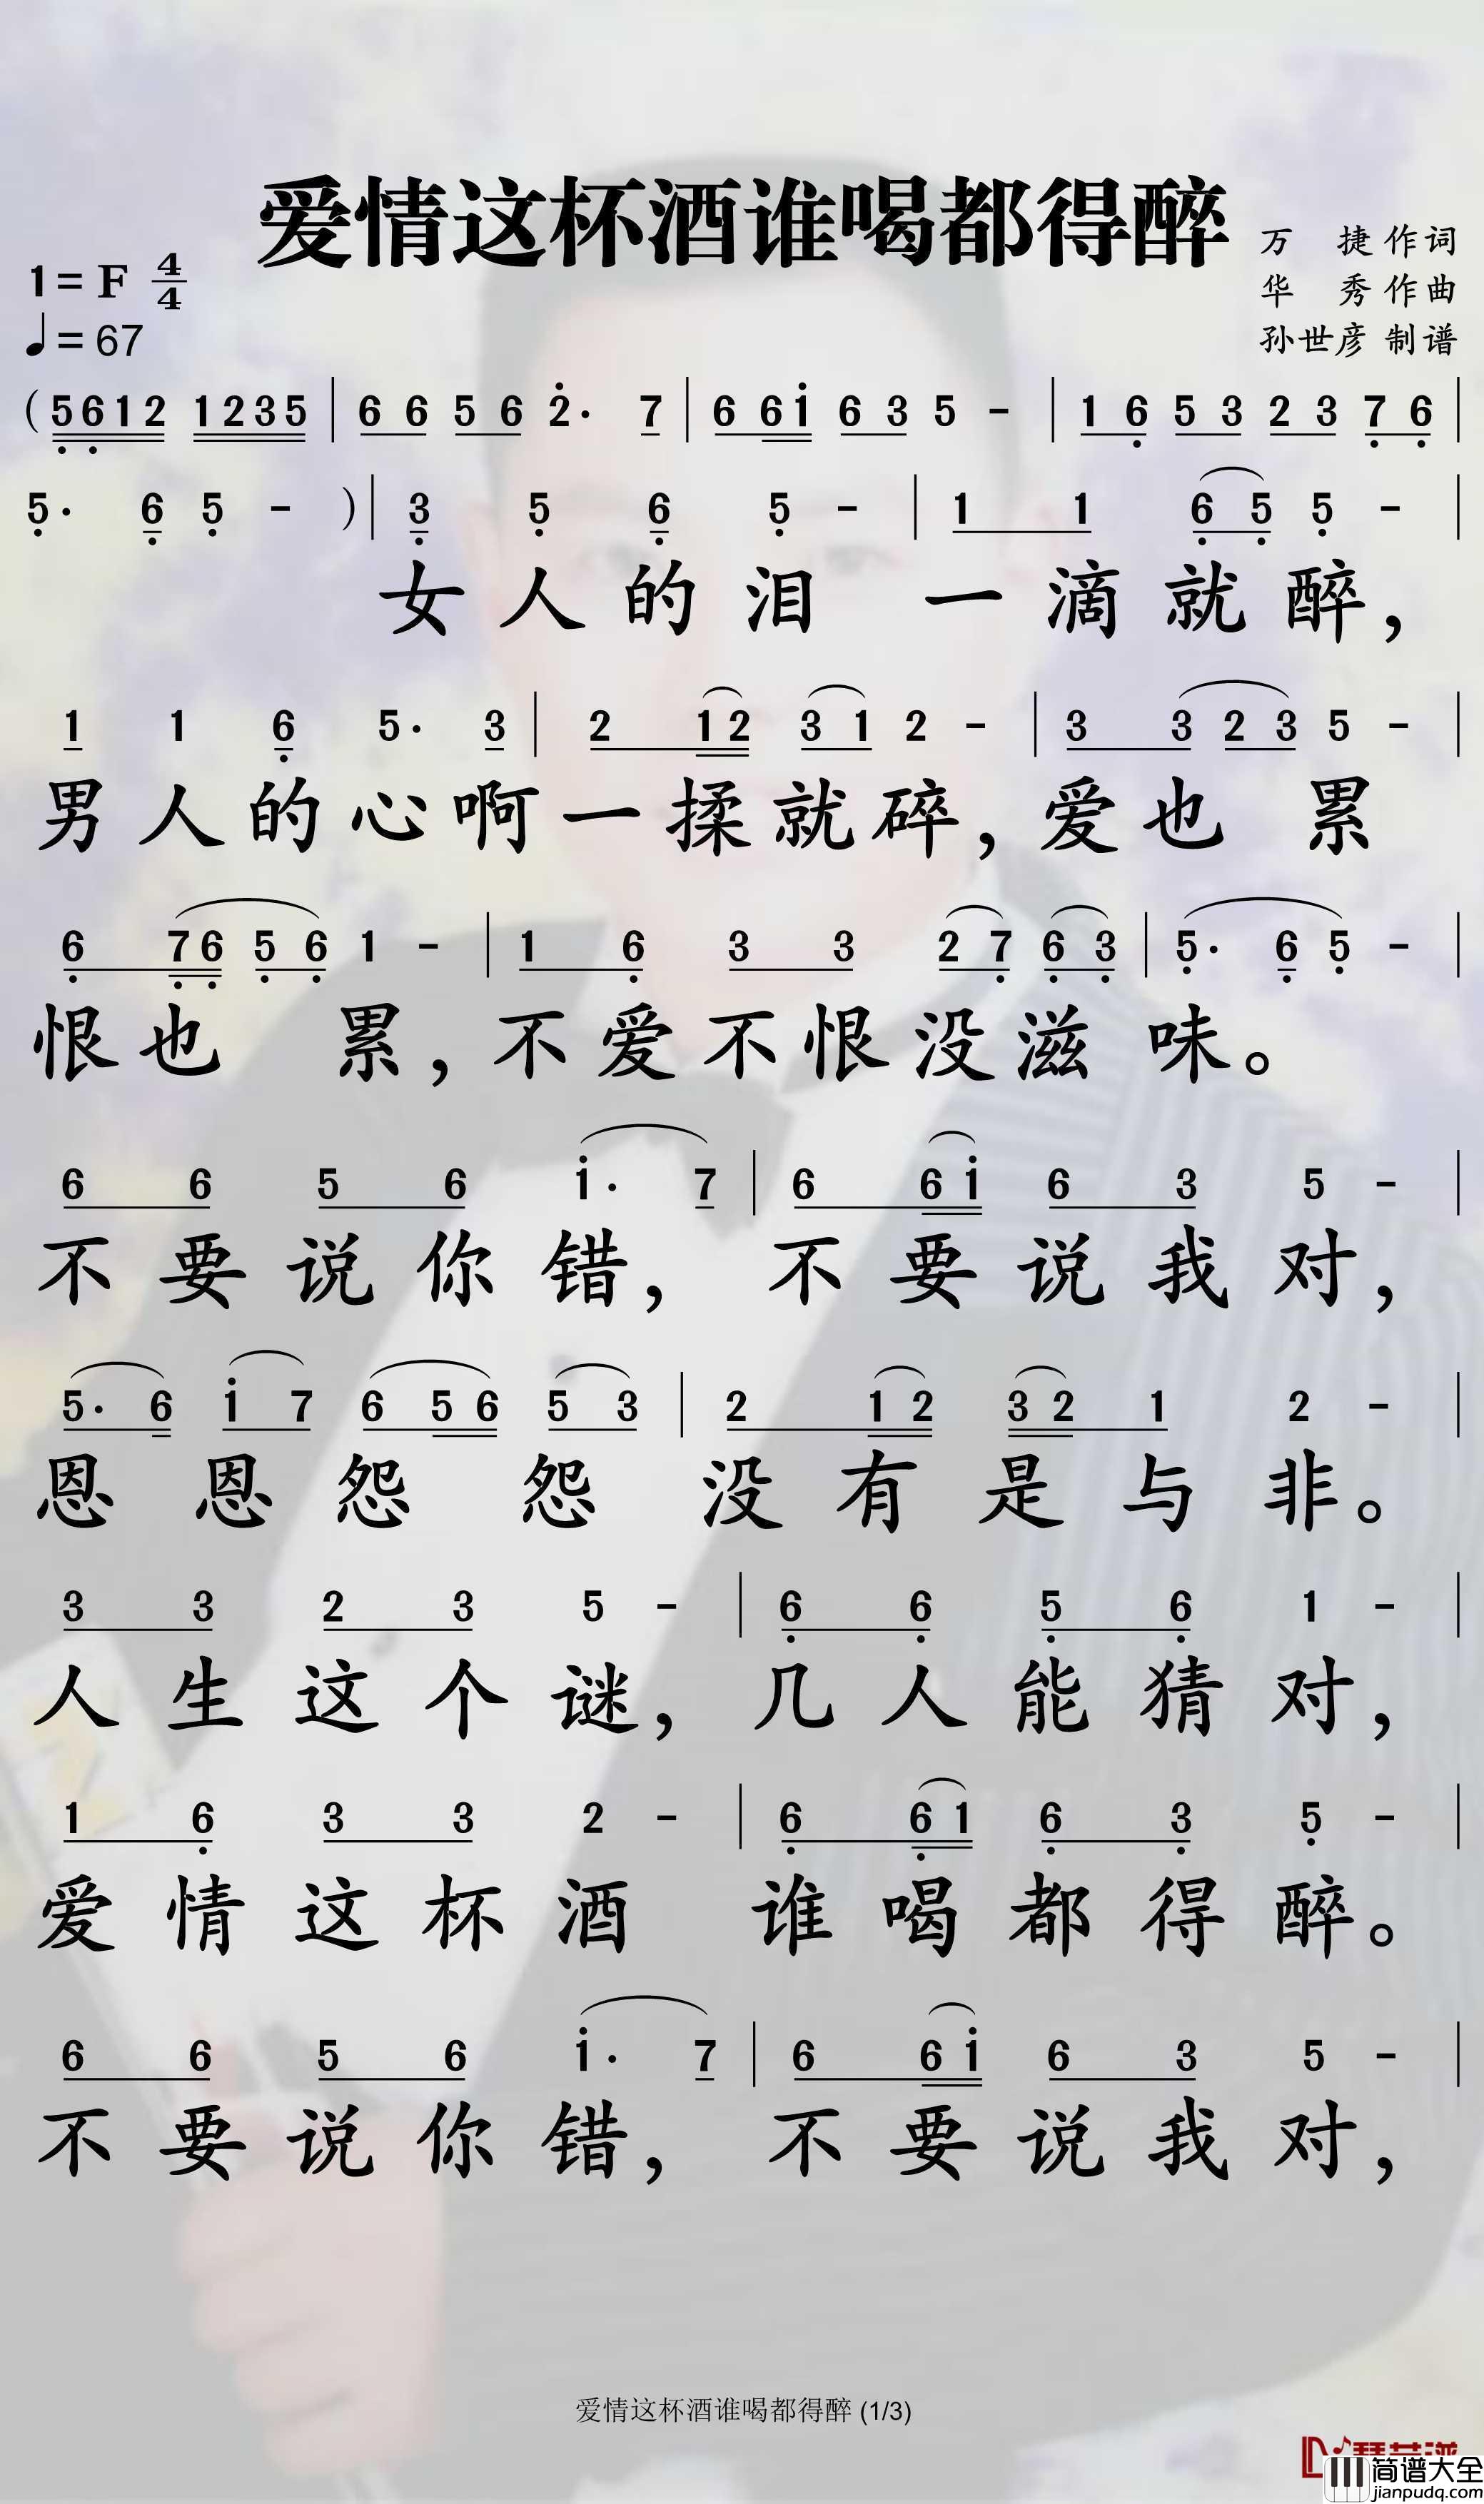 爱情这杯酒谁喝都得醉
万 捷 作词
1=F 4/4
华 秀 作曲
♩=67
孙世彦 制谱
(5̣6̣12 1235 | 66 56 2̇· 7 | 66i̇ 63 5 - | 16̣ 53 23 7̣6̣ |
5̣· 6̣ 5̣ - ) | 3̣ 5̣ 6̣ 5̣ - | 1 1 6̣5̣ 5̣ - |
女人的泪 一滴就醉，
1 1 6̣ 5· 3 | 2 12 31 2 - | 3 3 23 5 - |
男人的心啊一揉就碎，爱也 累
6̣ 7̣6̣ 5̣6̣ 1 - | 1 6̣ 3 3 27̣ 6̣3̣ | 5̣· 6̣ 5̣ - |
恨也 累，不爱不恨没滋味。
6 6 5 6 i̇· 7 | 6 6i̇ 6 3 5 - |
不要说你错，不要说我对，
5· 6 i̇ 7 6 56 5 3 | 2 12 32 1 2 - |
恩恩怨 怨 没有是与非。
3 3 2 3 5 - | 6̣ 6̣ 5̣ 6̣ 1 - |
人生这个谜，几人能猜对，
1 6̣ 3 3 2 - | 6̣ 6̣1 6̣ 3̣ 5̣ - |
爱情这杯酒 谁喝都得醉。
6 6 5 6 i̇· 7 | 6 6i̇ 6 3 5 - |
不要说你错，不要说我对，
爱情这杯酒谁喝都得醉 (1/3)
简谱大全
jianpudq.com